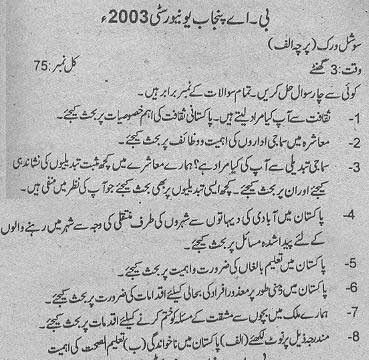 بی۔اے پنجاب یونیورسٹی 2003ء
سوشل ورک (پرچہ الف)
وقت: 3 گھنٹے کل نمبر: 75
کوئی سے چار سوال حل کریں۔ تمام سوالات کے نمبر برابر ہیں۔
1- ثقافت سے آپ کیا مراد لیتے ہیں۔ پاکستانی ثقافت کی اہم خصوصیات پر بحث کیجئے۔
2- معاشرہ میں سماجی اداروں کی اہمیت و وظائف پر بحث کیجئے۔
3- سماجی تبدیلی سے آپ کی کیا مراد ہے؟ ہمارے معاشرے میں کچھ مثبت تبدیلیوں کی نشاندہی
کیجئے اور ان پر بحث کیجئے۔ کچھ ایسی تبدیلیوں پر بھی بحث کیجئے جو آپ کی نظر میں منفی ہیں۔
4- پاکستان میں آبادی کی دیہاتوں سے شہروں کی طرف منتقلی کی وجہ سے شہر میں رہنے والوں
کے لئے پیدا شدہ مسائل پر بحث کیجئے۔
5- پاکستان میں تعلیم بالغاں کی ضرورت و اہمیت پر بحث کیجئے۔
6- پاکستان میں ذہنی طور پر معذور افراد کی بحالی کیلئے اقدامات کی ضرورت پر بحث کیجئے۔
7- ہمارے ملک میں بچوں سے مشقت کے مسئلہ کو ختم کرنے کیلئے اقدامات پر بحث کیجئے۔
8- مندرجہ ذیل پر نوٹ لکھئے (الف) پاکستان میں ناخواندگی (ب) تعلیم الصحت کی اہمیت